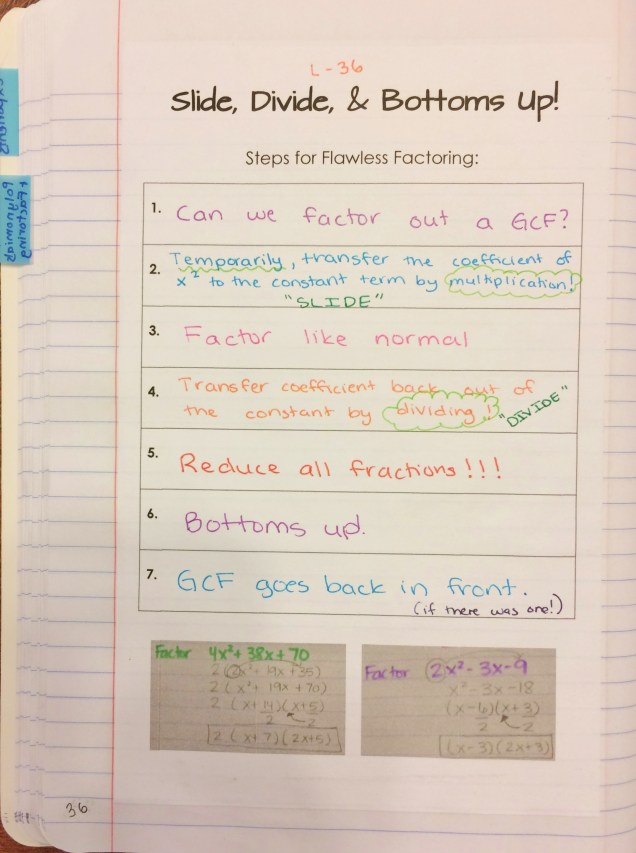 L-36
Slide, Divide, & Bottoms Up!
Steps for Flawless Factoring:
1. Can we factor out a GCF?
2. Temporarily, transfer the coefficient of
x² to the constant term by multiplication!
"SLIDE"
3. Factor like normal
4. Transfer coefficient back out of
the constant by dividing! "DIVIDE"
5. Reduce all fractions!!!
6. Bottoms up.
7. GCF goes back in front.
(if there was one!)
Factor 4x²+38x+70
2(2x²+19x+35)
2(x²+19x+70)
2(x+14)(x+5)
2 2
2(x+7)(2x+5)
Factor 2x²-3x-9
x²-3x-18
(x-6)(x+3)
2 2
(x-3)(2x+3)
36
factoring